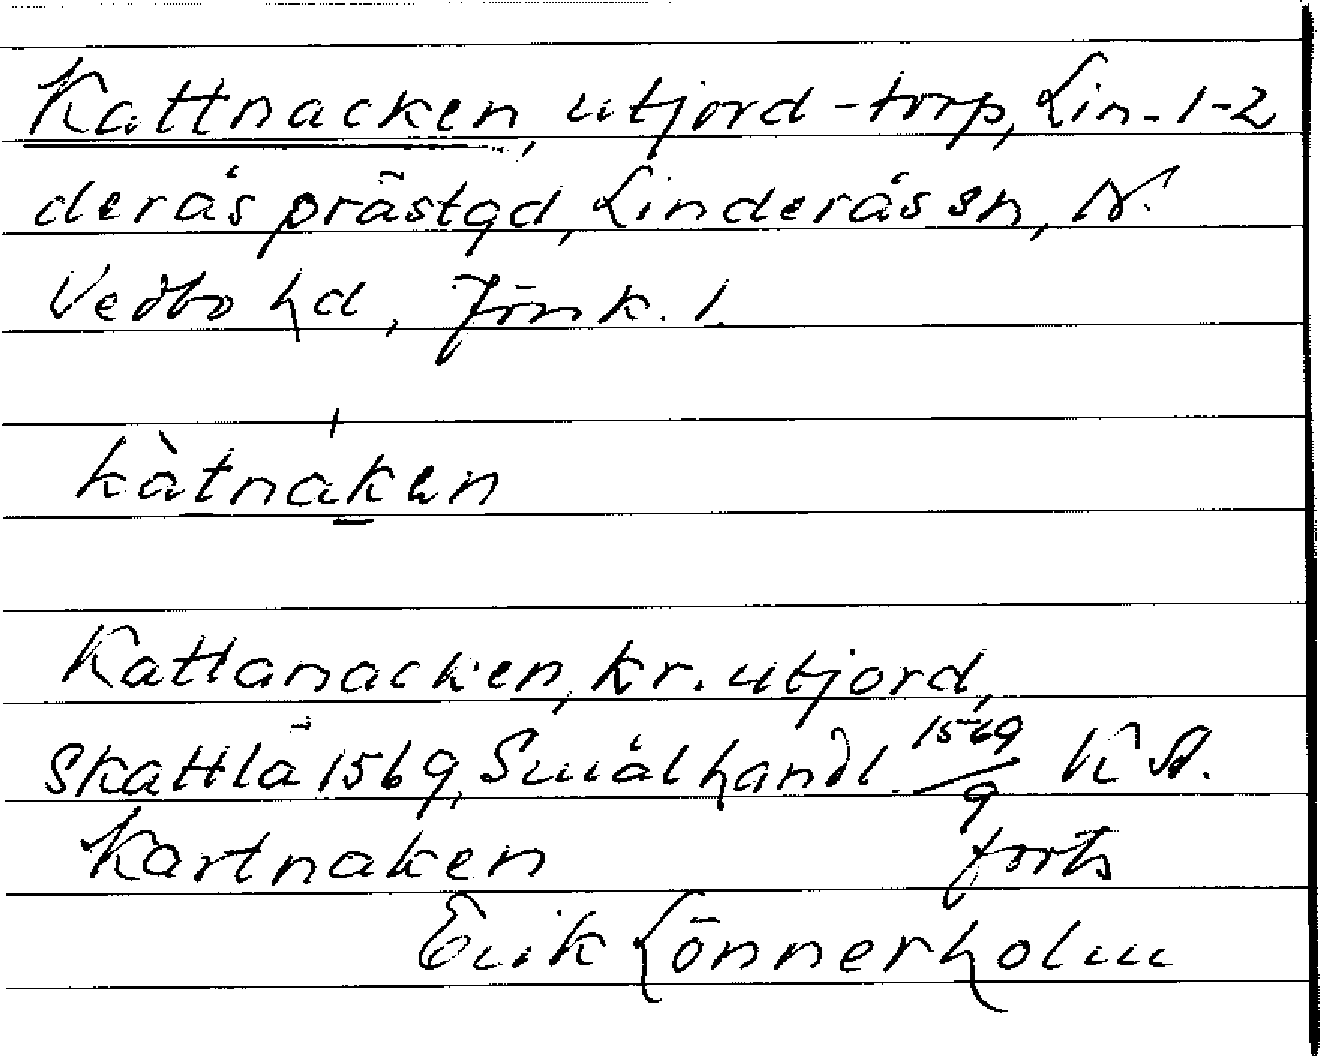 Kattnacken, utjord-torp, Lin- 1-2
derås prästgd, Linderås sn, N.
Vedbo hd, Jönk. l.
kàtnaken
Kattanacken, kr. utjord,
skattlä 1569, Smål handl. 1569/9 KA.
Kartnaken forts
Erik Lönnerholm